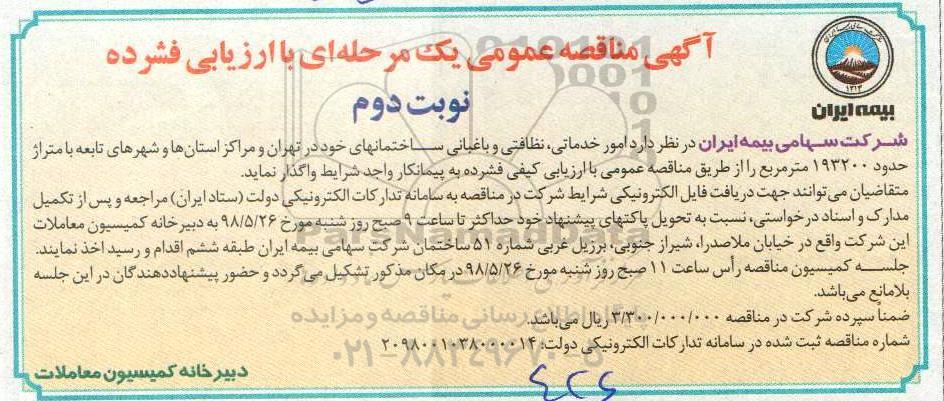 آگهی مناقصه عمومی یک مرحله‌ای با ارزیابی فشرده
نوبت دوم
۱۳۱۴
بیمه ایران
شرکت سهامی بیمه ایران در نظر دارد امور خدماتی، نظافتی و باغبانی ساختمانهای خود در تهران و مراکز استان‌ها و شهرهای تابعه با متراژ
حدود ۱۹۳۲۰۰ مترمربع را از طریق مناقصه عمومی با ارزیابی کیفی فشرده به پیمانکار واجد شرایط واگذار نماید.
متقاضیان می‌توانند جهت دریافت فایل الکترونیکی شرایط شرکت در مناقصه به سامانه تدارکات الکترونیکی دولت (ستاد ایران) مراجعه و پس از تکمیل
مدارک و اسناد درخواستی، نسبت به تحویل پاکتهای پیشنهاد خود حداکثر تا ساعت ۹ صبح روز شنبه مورخ ۹۸/۵/۲۶ به دبیرخانه کمیسیون معاملات
این شرکت واقع در خیابان ملاصدرا، شیراز جنوبی، برزیل غربی شماره ۵۱ ساختمان شرکت سهامی بیمه ایران طبقه ششم اقدام و رسید اخذ نمایند.
جلسه کمیسیون مناقصه رأس ساعت ۱۱ صبح روز شنبه مورخ ۹۸/۵/۲۶ در مکان مذکور تشکیل می‌گردد و حضور پیشنهاددهندگان در این جلسه
بلامانع می‌باشد.
ضمناً سپرده شرکت در مناقصه ۳/۳۰۰/۰۰۰/۰۰۰ ریال می‌باشد.
پایگاه اطلاع رسانی مناقصه و مزایده
شماره مناقصه ثبت شده در سامانه تدارکات الکترونیکی دولت: ۲۰۹۸۰۰۱۰۳۸۰۰۰۰۱۴
۰۲۱-۸۸۳۴۹۶۷۰-۵
دبیرخانه کمیسیون معاملات